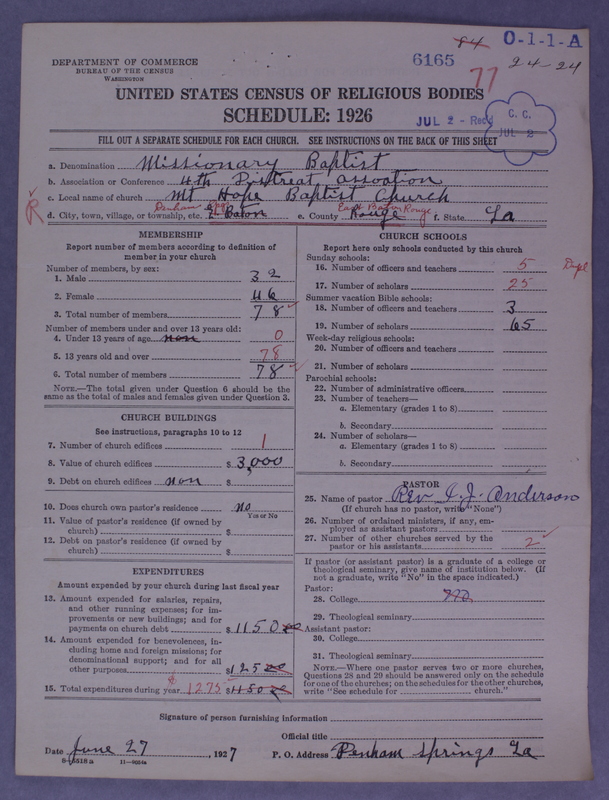 84 O-1-1-A
6165
77
24-24
DEPARTMENT OF COMMERCE
BUREAU OF THE CENSUS
WASHINGTON
UNITED STATES CENSUS OF RELIGIOUS BODIES
SCHEDULE: 1926
JUL 2 - Recd
C. C.
JUL 2
FILL OUT A SEPARATE SCHEDULE FOR EACH CHURCH. SEE INSTRUCTIONS ON THE BACK OF THIS SHEET
a. Denomination Missionary Baptist
b. Association or Conference 4th Distreat assoation
c. Local name of church Mt Hope Baptist Church
d. City, town, village, or township, etc. Denham Spgs E Baton e. County East Baton Rouge Rouge f. State La
R
MEMBERSHIP
Report number of members according to definition of
member in your church
Number of members, by sex:
1. Male 32
2. Female 46
3. Total number of members 78
Number of members under and over 13 years old:
4. Under 13 years of age non 0
5. 13 years old and over 78
6. Total number of members 78
NOTE.—The total given under Question 6 should be the
same as the total of males and females given under Question 3.
CHURCH BUILDINGS
See instructions, paragraphs 10 to 12
7. Number of church edifices 1
8. Value of church edifices $ 3,000
9. Debt on church edifices non $
10. Does church own pastor's residence no
Yes or No
11. Value of pastor's residence (if owned by
church) $
12. Debt on pastor's residence (if owned by
church) $
EXPENDITURES
Amount expended by your church during last fiscal year
13. Amount expended for salaries, repairs,
and other running expenses; for im-
provements or new buildings; and for
payments on church debt $ 1150 00
14. Amount expended for benevolences, in-
cluding home and foreign missions; for
denominational support; and for all
other purposes $ 125 00
15. Total expenditures during year $ 1275 $ 1150 00
CHURCH SCHOOLS
Report here only schools conducted by this church
Sunday schools:
16. Number of officers and teachers 5 Dupl
17. Number of scholars 25
Summer vacation Bible schools:
18. Number of officers and teachers 3
19. Number of scholars 65
Week-day religious schools:
20. Number of officers and teachers
21. Number of scholars
Parochial schools:
22. Number of administrative officers
23. Number of teachers—
a. Elementary (grades 1 to 8)
b. Secondary
24. Number of scholars—
a. Elementary (grades 1 to 8)
b. Secondary
PASTOR
25. Name of pastor Rev I. J. Anderson
(If church has no pastor, write "None")
26. Number of ordained ministers, if any, em-
ployed as assistant pastors
27. Number of other churches served by the
pastor or his assistants 2
If pastor (or assistant pastor) is a graduate of a college or
theological seminary, give name of institution below. (If
not a graduate, write "No" in the space indicated.)
Pastor:
28. College no
29. Theological seminary
Assistant pastor:
30. College
31. Theological seminary
NOTE.—Where one pastor serves two or more churches,
Questions 28 and 29 should be answered only on the schedule
for one of the churches; on the schedules for the other churches,
write "See schedule for church."
Signature of person furnishing information
Official title
Date June 27, 1927 P. O. Address Denham Springs La